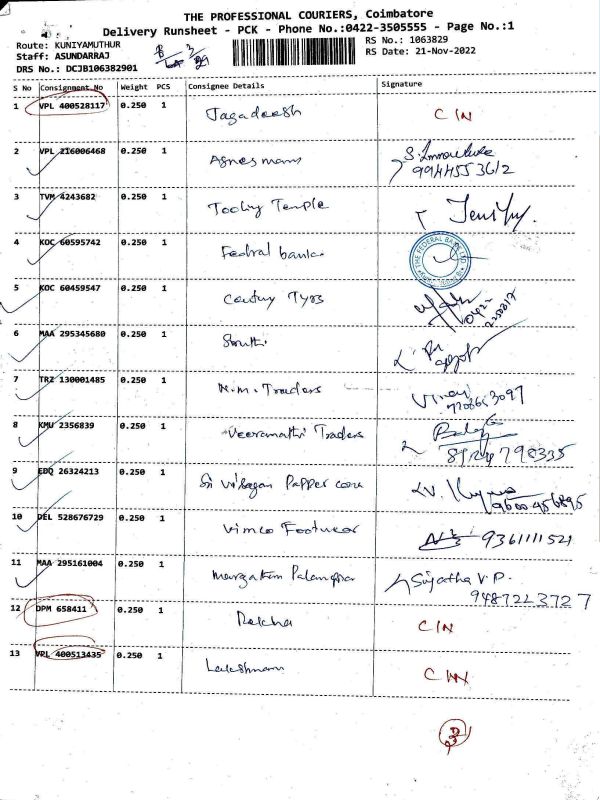 THE PROFESSIONAL COURIERS, Coimbatore
Delivery Runsheet - PCK - Phone No.:0422-3505555 - Page No.:1
Route: KUNIYAMUTHUR
RS No.: 1063829
Staff: ASUNDARRAJ
RS Date: 21-Nov-2022
DRS No.: DCJB106382901
S No Consignment No Weight PCS Consignee Details Signature
1 VPL 400528117 0.250 1 Jagadeesh CIN
2 VPL 216006468 0.250 1 Agnes mans
9944553612
3 TVM 4243682 0.250 1 Tooling Temple
4 KOC 60595742 0.250 1 Fedral bank THE FEDERAL BANK LTD
5 KOC 60459547 0.250 1 Century Tyrs
0422
6 MAA 295345680 0.250 1 Sruthi
7 TRZ 130001485 0.250 1 N.M. Traders
8 KMU 2356839 0.250 1 Veeramathi Traders
9 EDQ 26324213 0.250 1 Sri
9600456895
10 DEL 528676729 0.250 1 Vimco Footwear 9361111521
11 MAA 295161004 0.250 1 Sujatha V.P.
9487223727
12 DPM 658411 0.250 1 Rekha CIN
13 VPL 400513435 0.250 1 Lakshmanan CIN